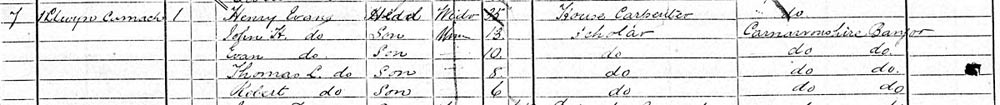 7 1 Henry Evans Head Widr 35 House Carpenter do
John H. do Son Unm 13 Scholar Carnarvonshire Bangor
Evan do Son 10 do do do
Thomas L. do Son 8 do do do
Robert do Son 6 do do do